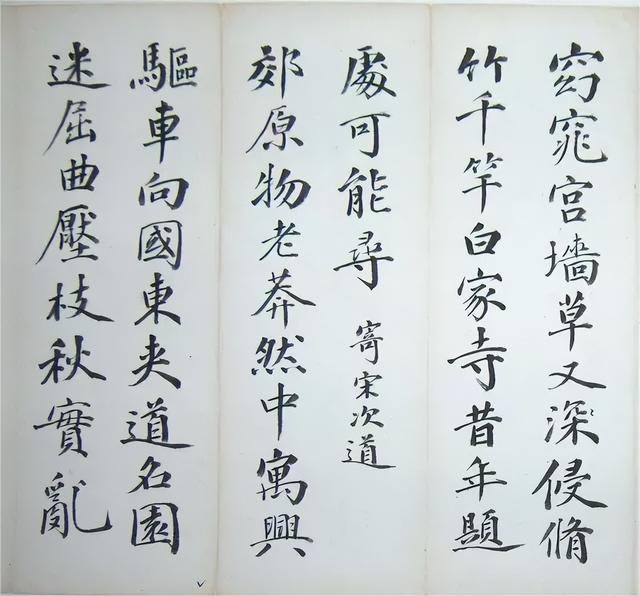 窈窕宫墻草又深侵脩
竹千竿白家寺昔年題
處可能尋
寄宋次道
郊原物老莽然中寓興
驅車向國東夹道名園
迷屈曲壓枝秋實亂